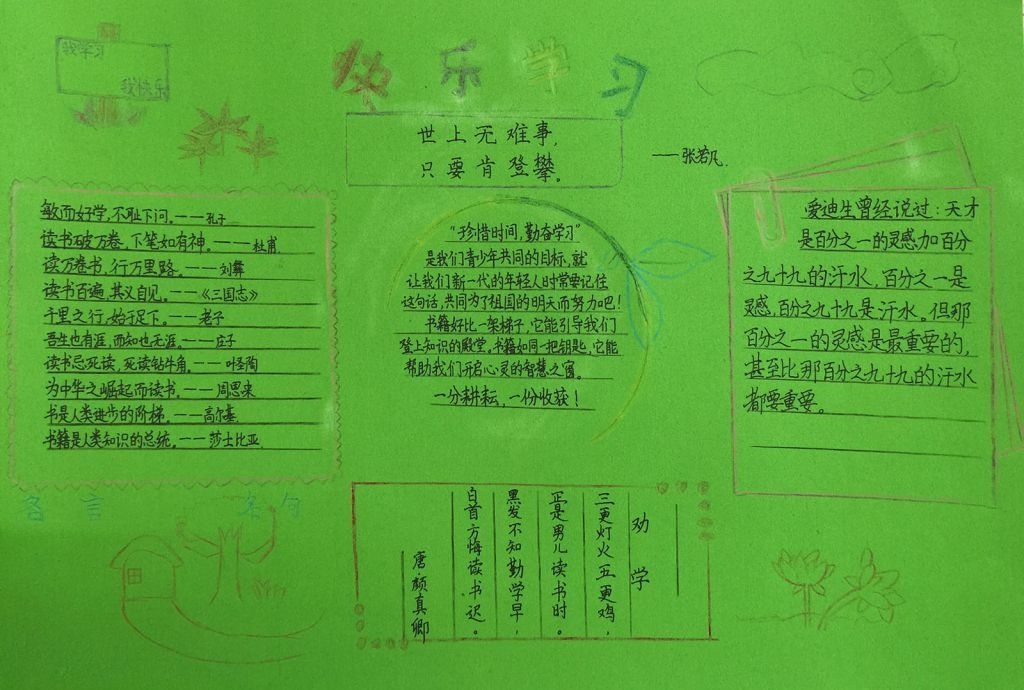 我学习
我快乐
快乐学习
世上无难事,
只要肯登攀。
——张若凡.
敏而好学,不耻下问。——孔子
读书破万卷,下笔如有神。——杜甫
读万卷书,行万里路。——刘彝
读书百遍,其义自见。——《三国志》
千里之行,始于足下。——老子
吾生也有涯,而知也无涯。——庄子
读书忌死读,死读钻牛角。——叶圣陶
为中华之崛起而读书。——周恩来
书是人类进步的阶梯。——高尔基
书籍是人类知识的总统。——莎士比亚
名言名句
“珍惜时间,勤奋学习”
是我们青少年共同的目标,就
让我们新一代的年轻人时常要记住
这句话,共同为了祖国的明天而努力吧!
书籍好比一架梯子,它能引导我们
登上知识的殿堂。书籍如同一把钥匙,它能
帮助我们开启心灵的智慧之窗。
一分耕耘,一份收获!
爱迪生曾经说过:天才
是百分之一的灵感,加百分
之九十九的汗水,百分之一是
灵感,百分之九十九是汗水。但那
百分之一的灵感是最重要的,
甚至比那百分之九十九的汗水
都要重要。
劝学
三更灯火五更鸡,
正是男儿读书时。
黑发不知勤学早,
白首方悔读书迟。
唐颜真卿